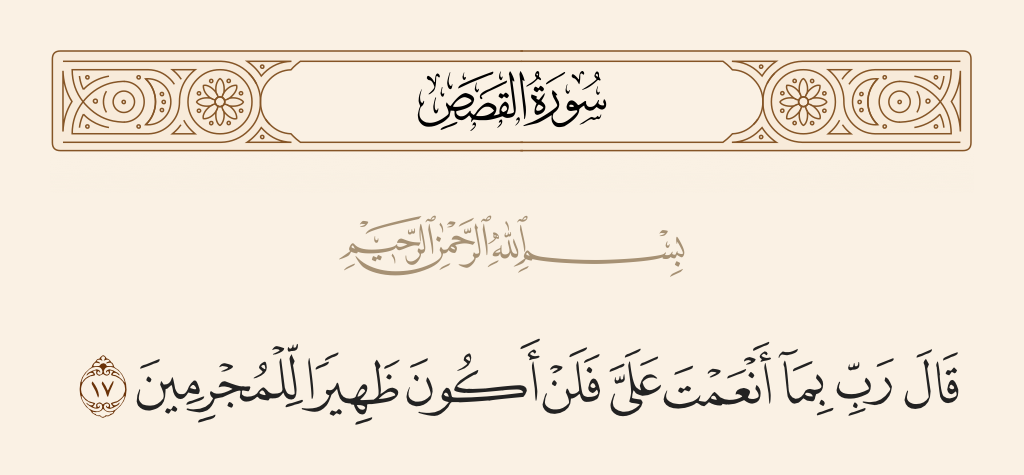 سُورَةُ القَصَصِ
بِسْمِ ٱللَّهِ ٱلرَّحْمَٰنِ ٱلرَّحِيمِ
قَالَ رَبِّ بِمَآ أَنْعَمْتَ عَلَىَّ فَلَنْ أَكُونَ ظَهِيرًا لِّلْمُجْرِمِينَ ١٧